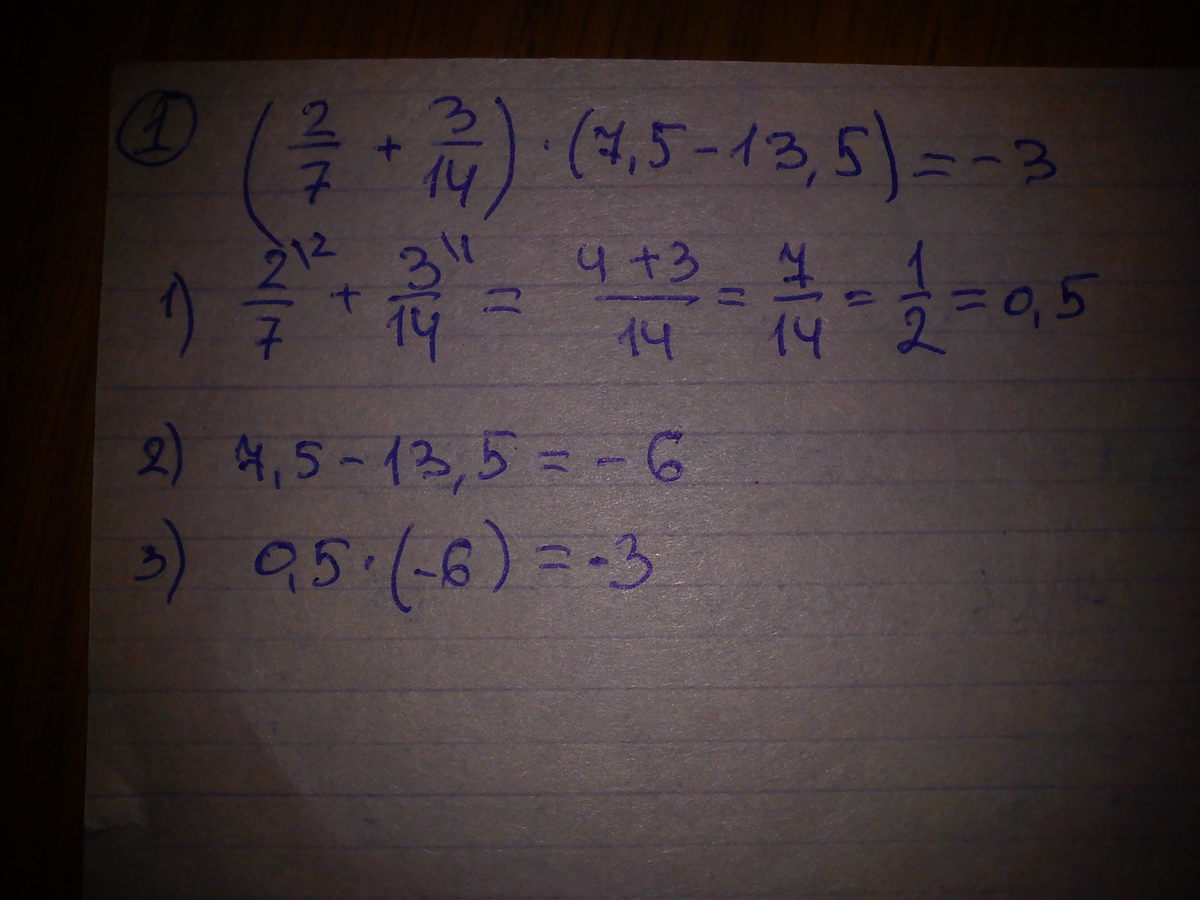 ① (2/7 + 3/14) · (7,5 - 13,5) = -3
1) 2\2/7 + 3\1/14 = 4+3/14 = 7/14 = 1/2 = 0,5
2) 7,5 - 13,5 = - 6
3) 0,5 · (-6) = -3